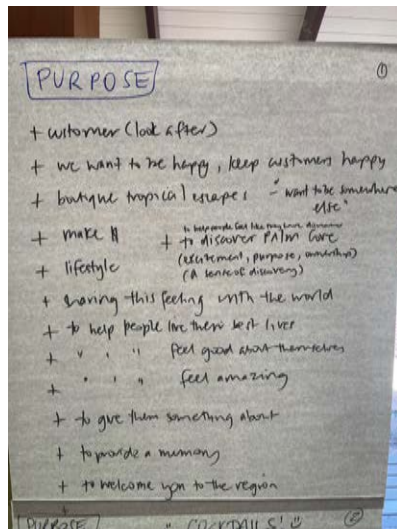 ①
PURPOSE
+ customer (look after)
+ we want to be happy, keep customers happy
+ boutique tropical escapes - "want to be somewhere else"
+ make
+ to discover PAlm Cove
(excitement, purpose, ownership)
(a sense of discovery)
+ lifestyle
+ sharing this feeling with the world
+ to help people live there best lives
+ " " " feel good about themselves
+ " " " feel amazing
+ to give them something about
+ to provide a memory
+ to welcome you to the region
+
PURPOSE
" COCKTAILS'!
②